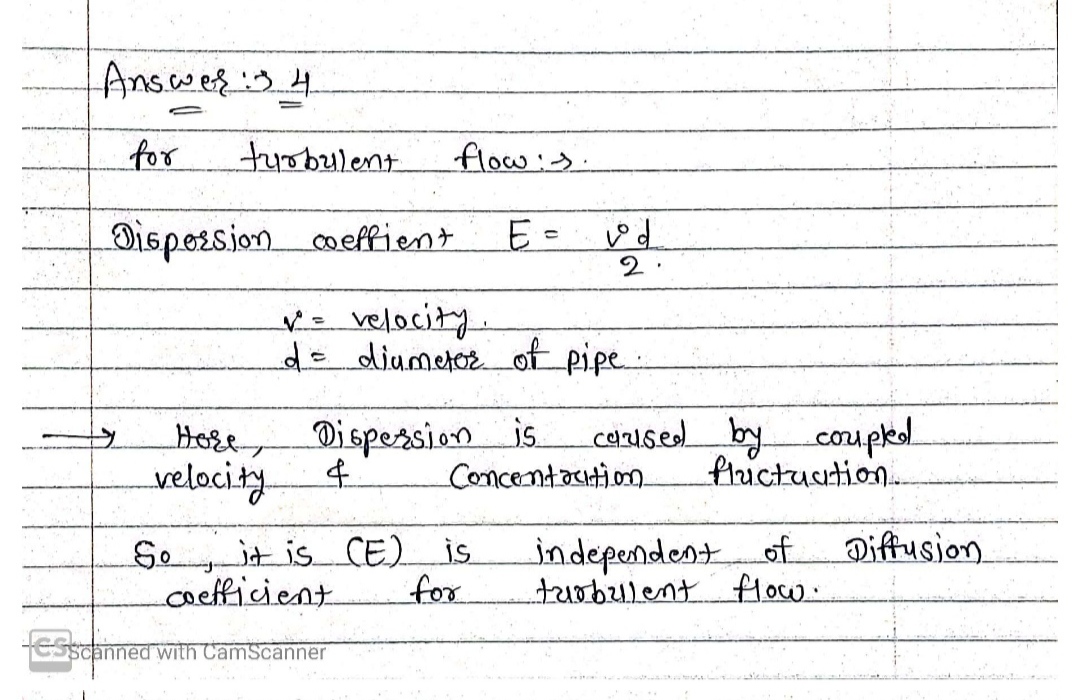 Answer :→ 4
for turbulent flow :→ .
Dispersion coeffient E = vd
2 .
v = velocity .
d = diameter of pipe .
→ Here, Dispersion is caused by coupled
velocity & Concentration fluctuation .
So , it is (E) is independent of Diffusion
coefficient for turbulent flow .
CS Scanned with CamScanner